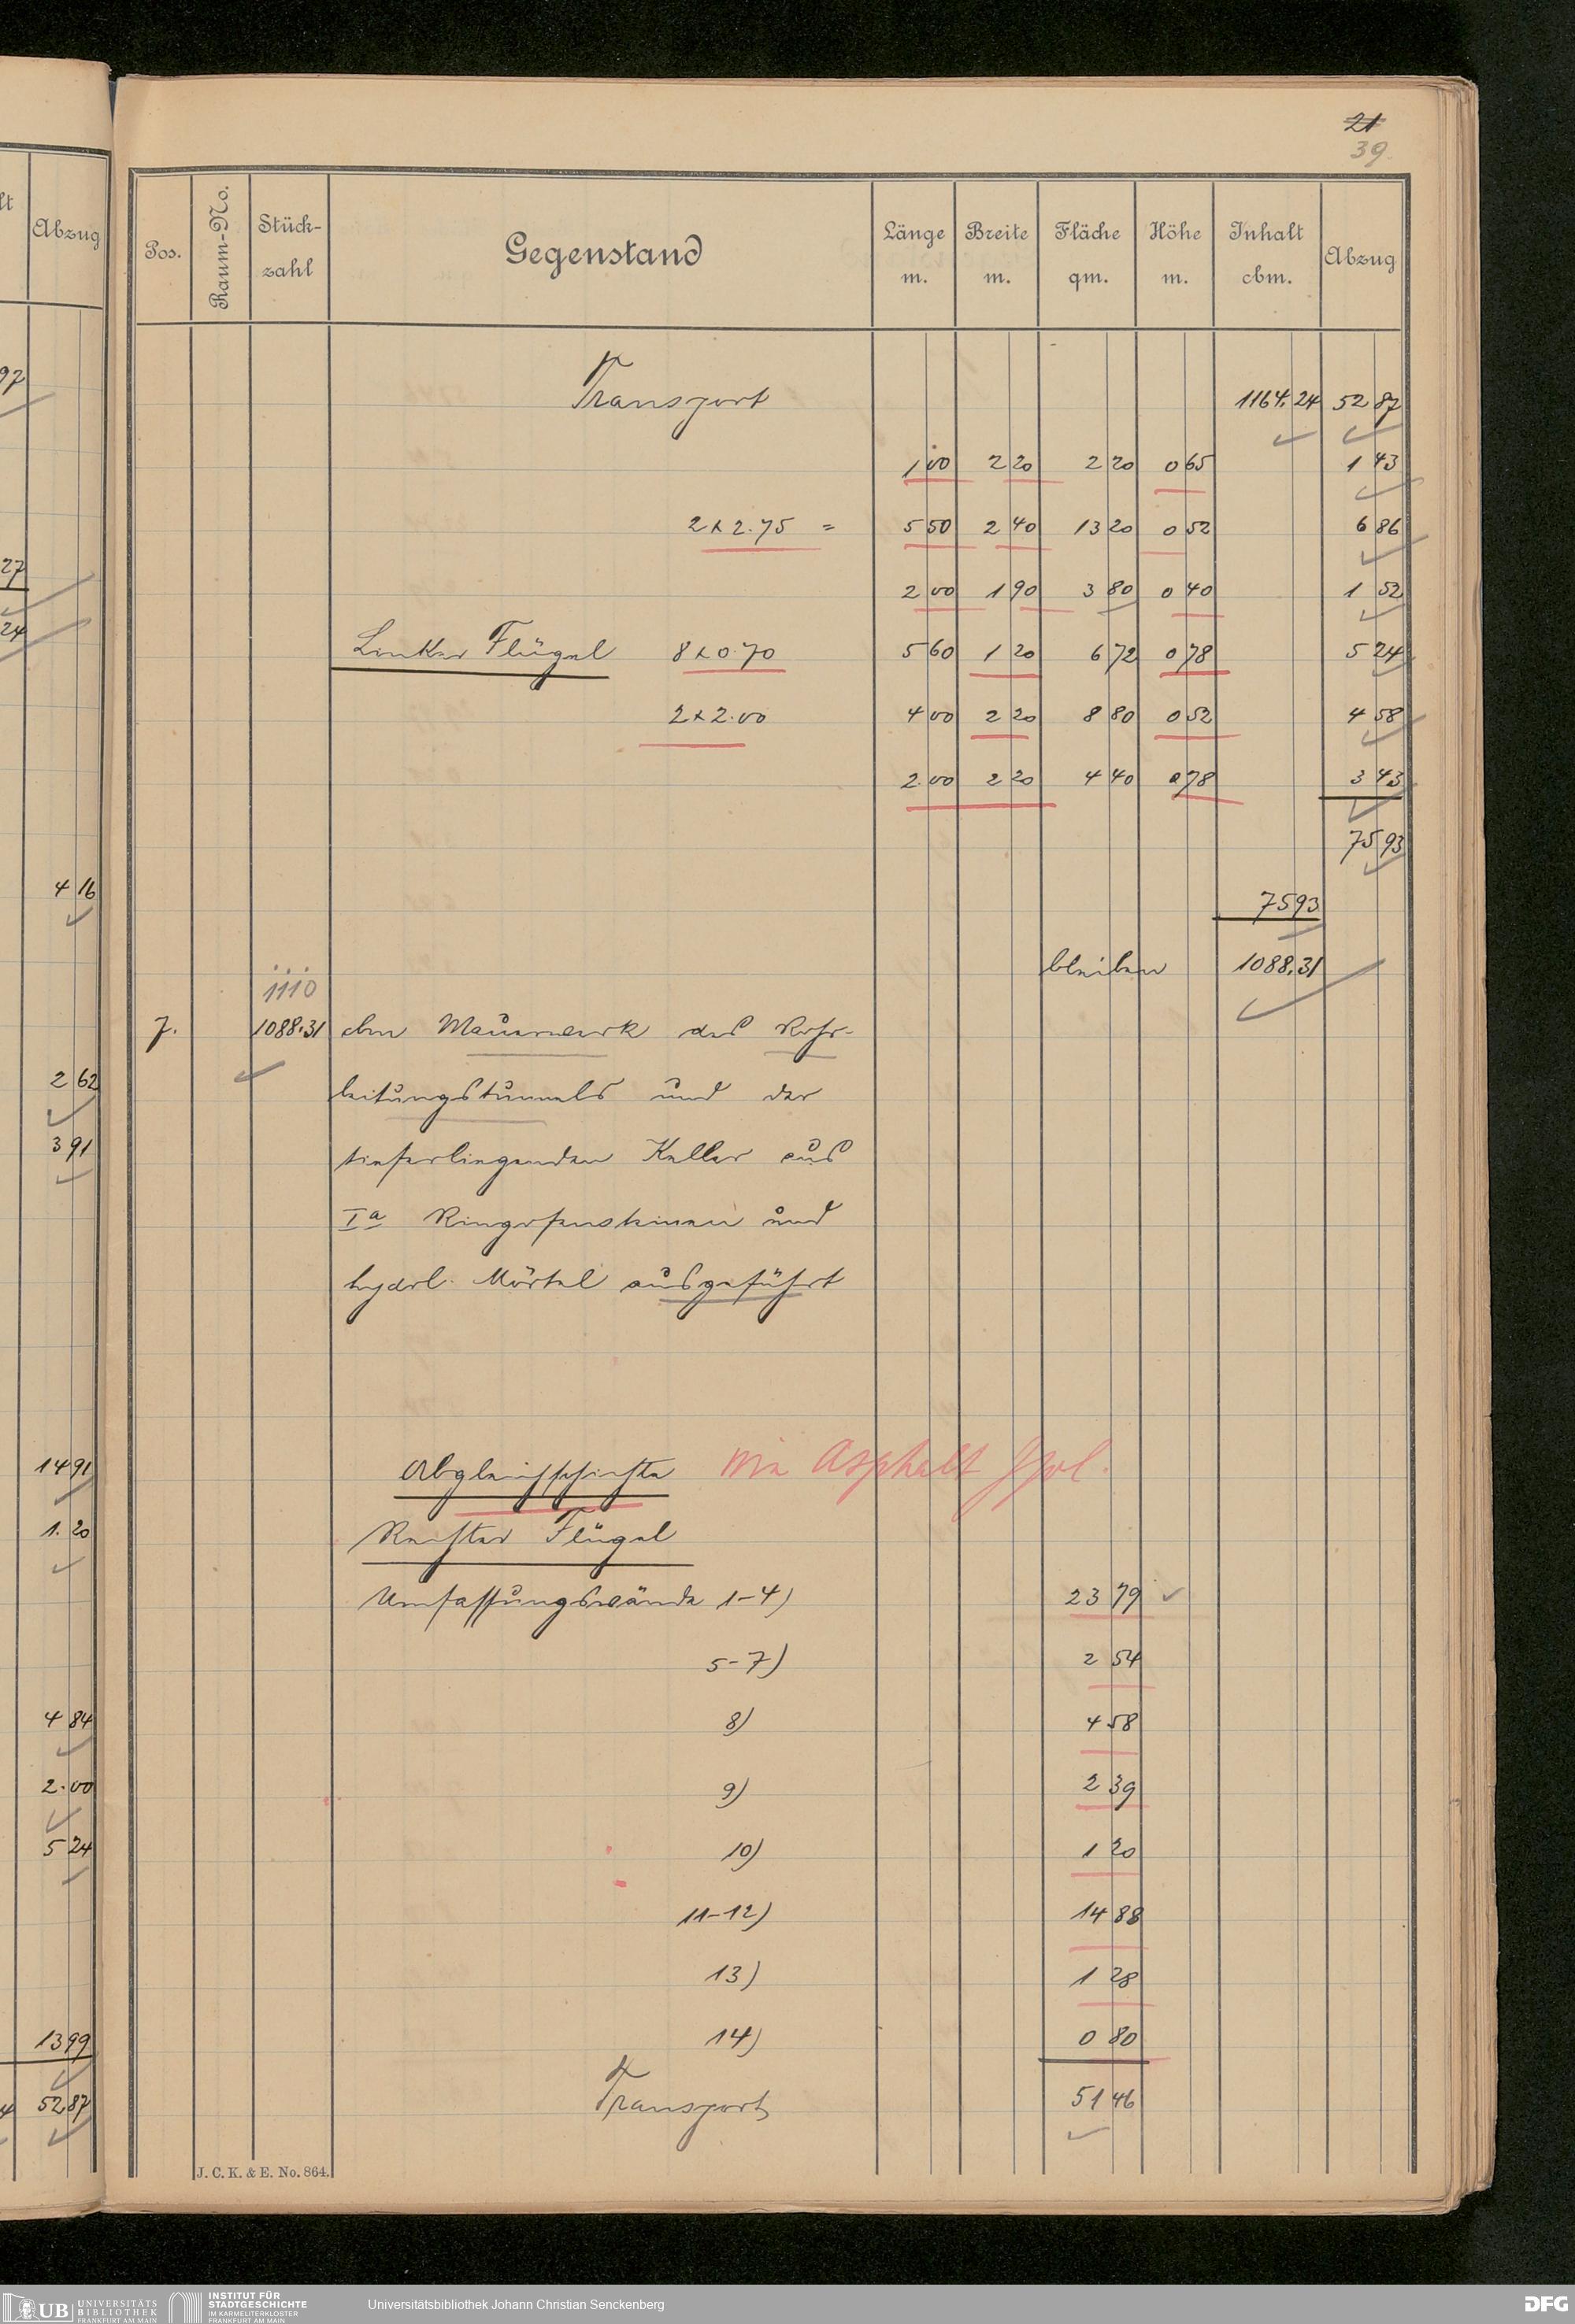 21
39
lt
Abzug
97
27
24
4 16
2 62
3 91
14 91
1. 20
4 84
2.00
5 24
13 99
4 52 87
Pos. Raum-No. Stück-zahl Gegenstand Länge m. Breite m. Fläche qm. Höhe m. Inhalt cbm. Abzug
Transport 1164.24 52 87
1 00 2 20 2 20 0 65 1 43
2 x 2.75 = 5 50 2 40 13 20 0 52 6 86
2 00 1 90 3 80 0 40 1 52
Linker Flügel 8 x 0.70 5 60 1 20 6 72 0 78 5 24
2 x 2.00 4 00 2 20 8 80 0 52 4 58
2.00 2 20 4 40 0 78 3 43
75 93
75 93
bleiben 1088.31
1110
7. 1088.31 cbm Mauerwerk des Rohr-
leitungstunnels und der
tieferliegenden Keller aus
Ia Ringofensteinen und
hydrl. Mörtel ausgeführt
Abgleichschichte wie Asphalt
Rechter Flügel
Umfassungswände 1-4) 23 79
5-7) 2 54
8) 4 58
9) 2 39
10) 1 20
11-12) 14 88
13) 1 28
14) 0 80
Transport 51 46
J. C. K. & E. No. 864.
UB UNIVERSITÄTS
BIBLIOTHEK
FRANKFURT AM MAIN
INSTITUT FÜR
STADTGESCHICHTE
IM KARMELITERKLOSTER
FRANKFURT AM MAIN
Universitätsbibliothek Johann Christian Senckenberg
DFG